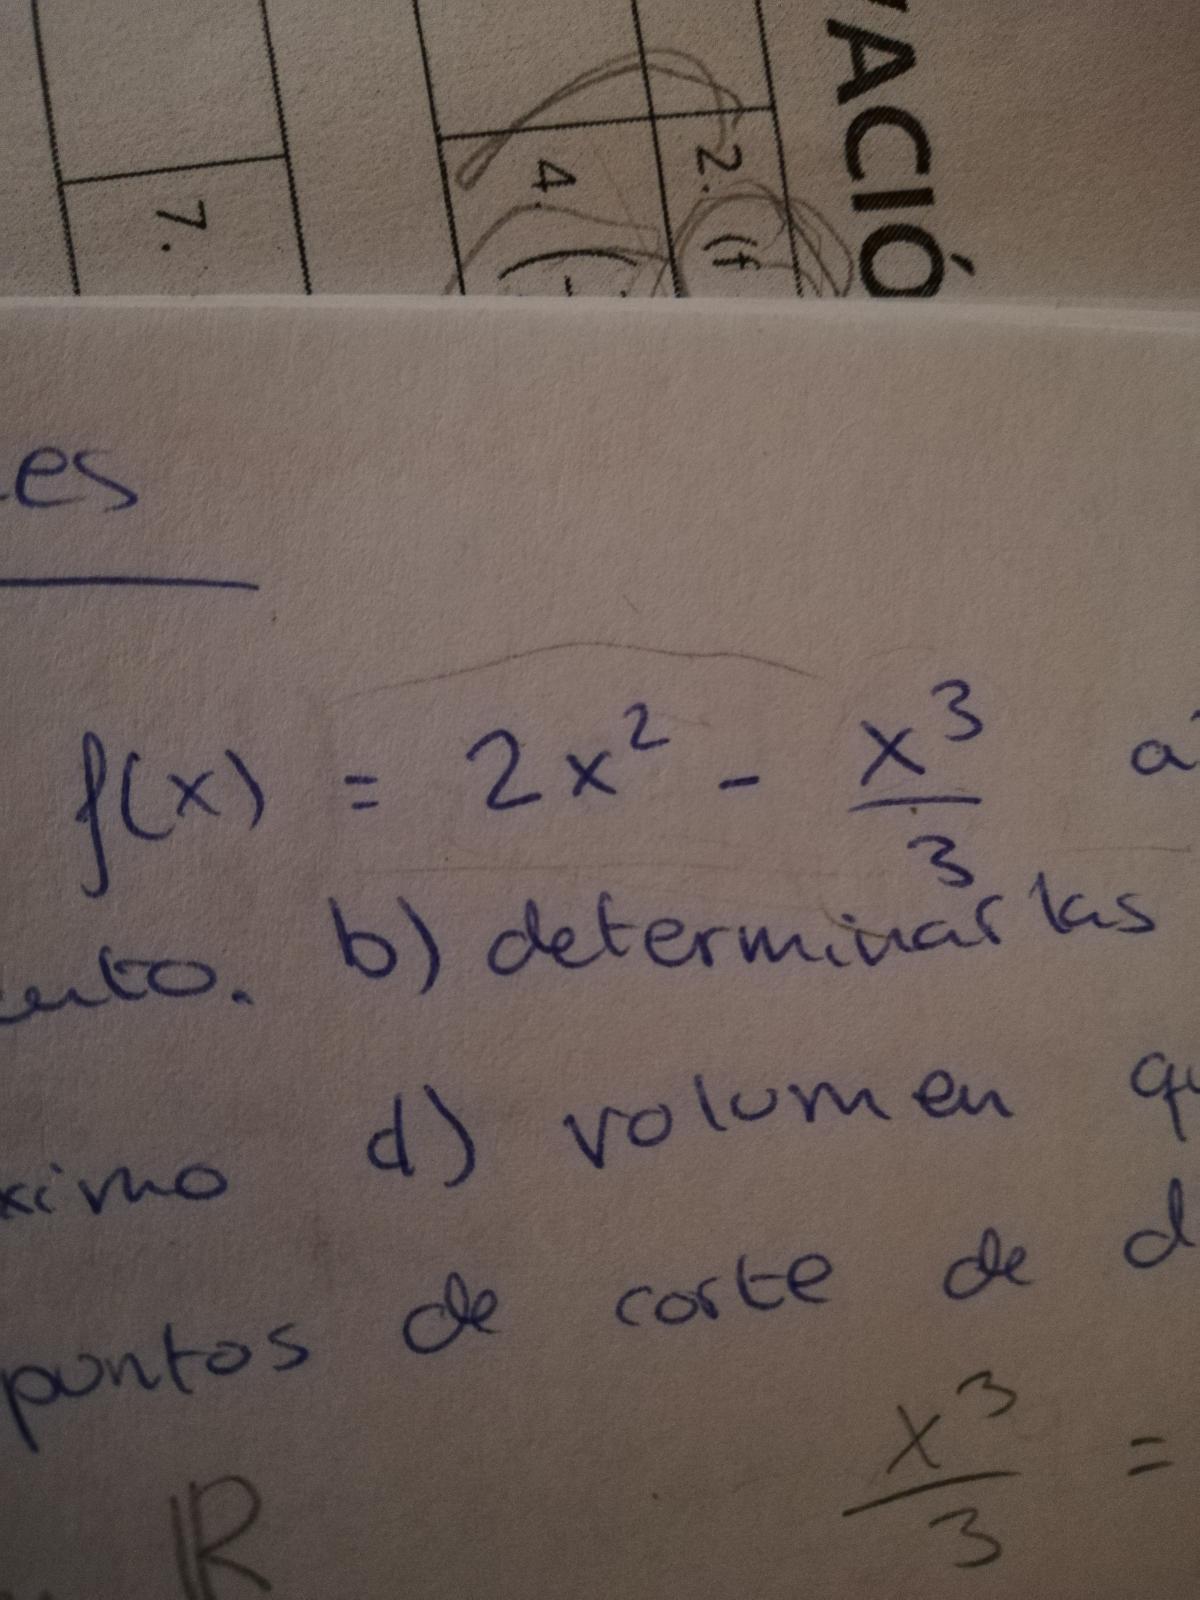 VACIÓ
2. (f
4. (-
7.
es
f(x) = 2x² - x³/3 a
ento. b) determinar las
ximo d) volumen qu
puntos de corte de d
x³/3 =
ℝ